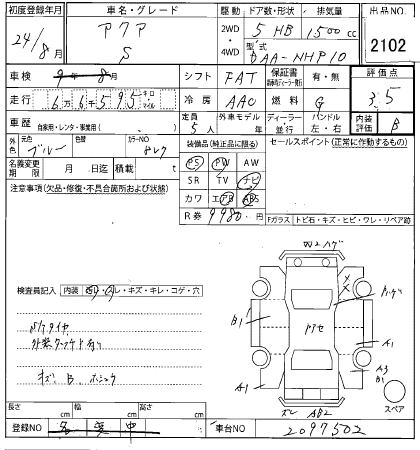 初度登録年月 車名・グレード 駆動 ドア数・形状 排気量 出品NO
24/8月 アクア S 2WD・4WD 5 HB 1500cc 2102
型式 DAA-NHP10
車検 9年8月 シフト FAT 保証書 有・無 評価点
走行 6万6千595キロ マイル 冷房 AAC 燃料 G 3.5
車歴 自家用・レンタ・事業用( ) 定員 5人 外車モデル 年 ディーラー・並行 ハンドル 左・右 内装評価 B
外色 元色 ブルー 色替 カラーNO 8W7 装備品(純正品に限る) セールスポイント(正常に作動するもの)
名義変更期限 月 日迄 積載 t PS PW AW
注意事項(欠品・修復・不具合箇所および状態) SR TV ナビ
カワ エアB ABS
R券 9980 Fガラス トビ石・キズ・ヒビ・ワレ・リペア跡
検査員記入 内装 ヨゴレ・スレ・キズ・キレ・コゲ・穴
B1 A1
A1 A3 B1
スペア
AB2
長さ cm 幅 cm 高さ cm
登録NO 車台NO 2097502